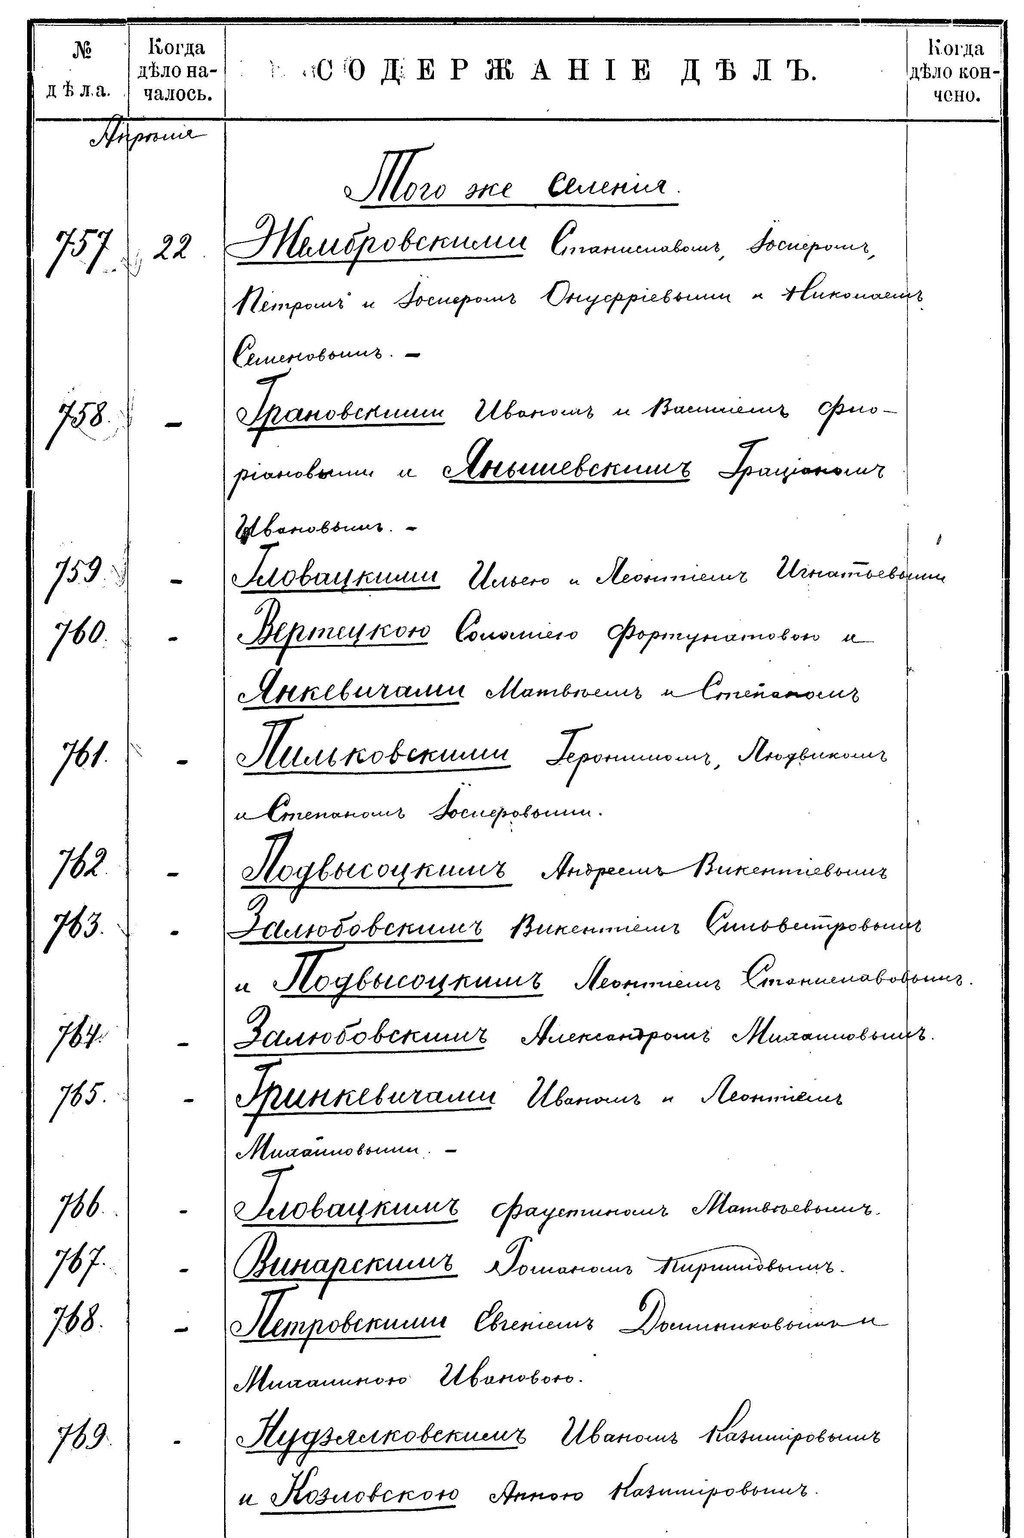 № дѣла.
Когда дѣло началось.
СОДЕРЖАНІЕ ДѢЛЪ.
Когда дѣло кончено.
Апрѣля
Того же селенія.
757. 22. Жембровскими Станиславомъ, Іосифомъ,
Петромъ и Іосифомъ Онуфріевыми и Николаемъ
Семеновымъ. –
758. – Грановскими Иваномъ и Василіемъ Фло-
ріановыми и Янышевскимъ Граціаномъ
Ивановымъ. –
759. – Гловацкими Ильею и Леонтіемъ Игнатьевыми
760. – Вертецкою Соломіею Фортунатовою и
Янкевичами Матвѣемъ и Степаномъ
761. – Пильковскими Геронимомъ, Людвикомъ
и Степаномъ Іосифовыми.
762. – Подвысоцкимъ Андреемъ Викентіевымъ
763. – Залюбовскимъ Викентіемъ Сильвестровымъ
и Подвысоцкимъ Леонтіемъ Станиславовымъ.
764. – Залюбовскимъ Александромъ Михайловымъ.
765. – Гринкевичами Иваномъ и Леонтіемъ
Михайловыми. –
766. – Гловацкимъ Фаустиномъ Матвѣевымъ.
767. – Винарскимъ Романомъ Кирилловымъ.
768. – Петровскими Евгеніемъ Доминиковымъ и
Михалиною Ивановою.
769. – Нудзялковскимъ Иваномъ Казиміровымъ
и Козловскою Анною Казиміровымъ.